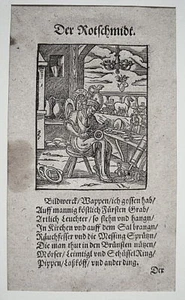 Der Rotschmidt.
Bildwerck/Wappen/ich gossen hab/
Auff mannig köstlich Fürsten Grab/
Artlich Leuchter/so stehn und hangn/
In Kirchen und auff dem Sal brangn/
Rauchfesser und die Messing Sprützn/
Die man thut in den Brünsten nützn/
Mörser/Leimtigl und Schüssel Ring/
Pippen/Laßköff/und ander ding.